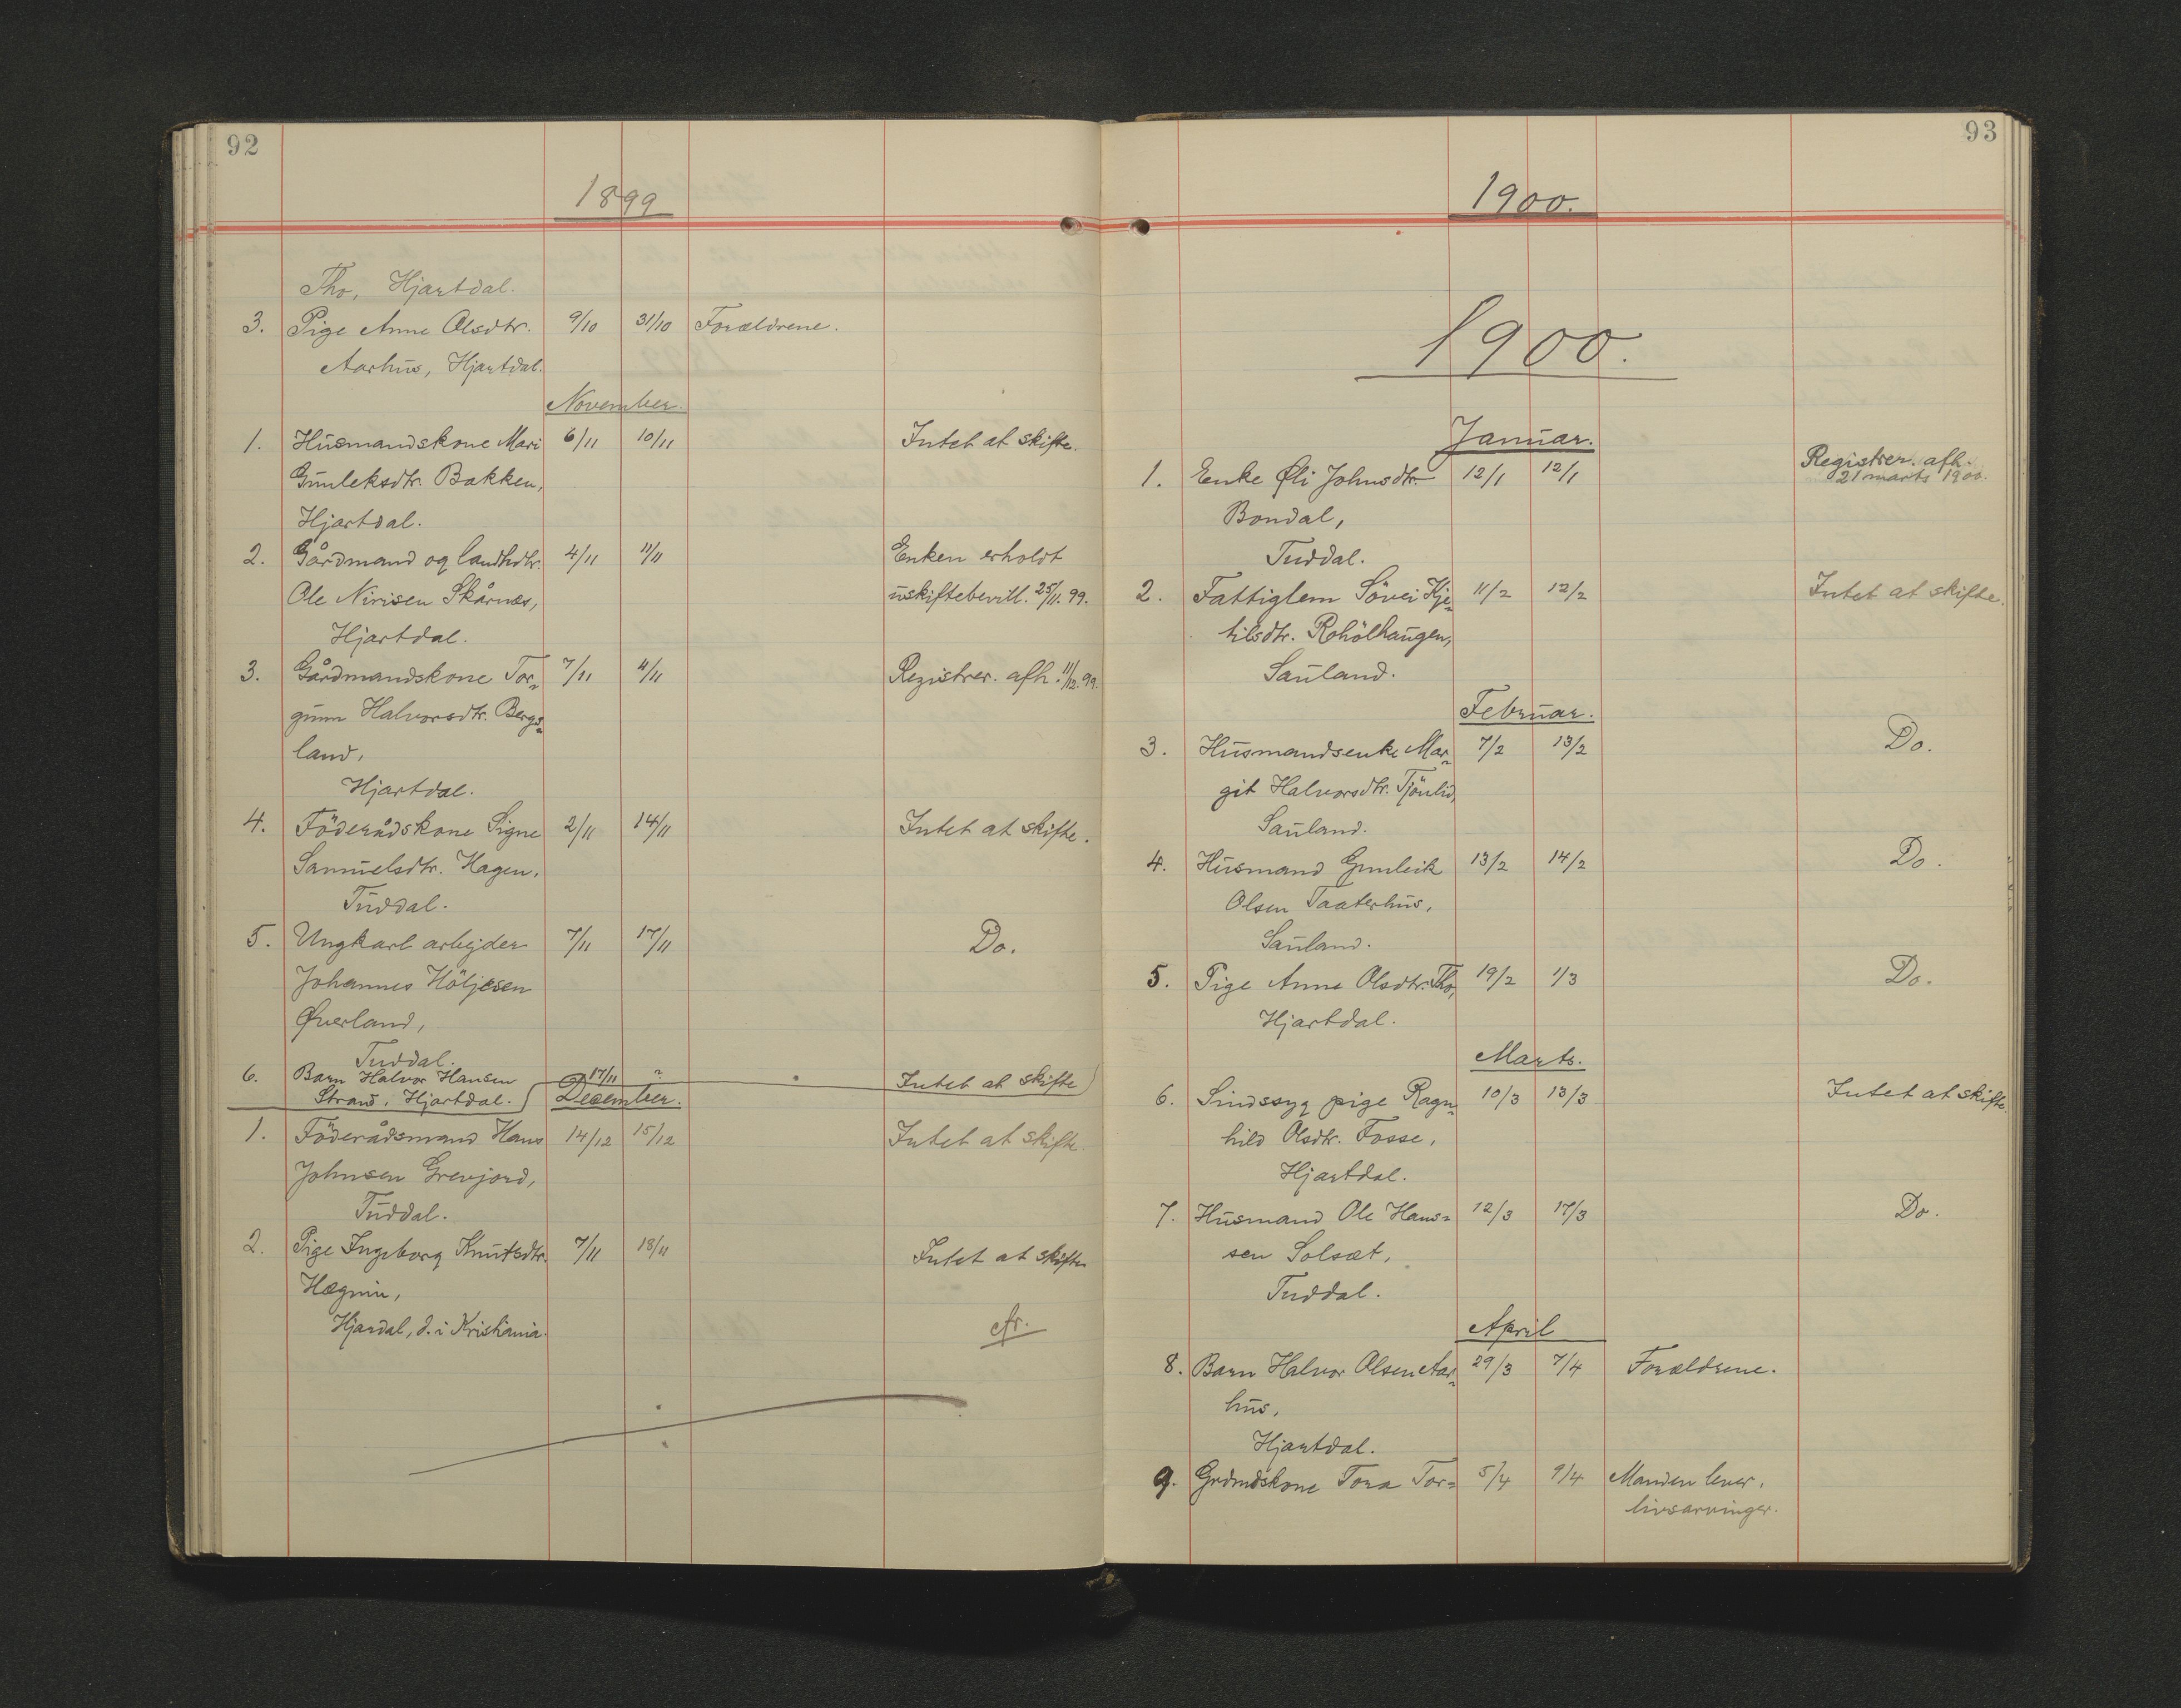 92
1899
Tho, Hjartdal.
3. Pige Anne Olsdtr. 9/10 31/10 Forældrene.
Aarhus, Hjartdal.
November.
1. Husmandskone Mari 6/11 10/11 Intet at skifte.
Gunleksdtr. Bakken,
Hjartdal.
2. Gårdmand og landhdlr. 4/11 11/11 Enken erholdt
Ole Nirisen Skårnes, uskiftebevill. 25/11. 99.
Hjartdal.
3. Gårdmandskone Tor- 7/11 11/11 Registrer. afh. 11/12. 99.
gunn Halvorsdtr. Bergs-
land,
Hjartdal.
4. Föderådskone Signe 2/11 14/11 Intet at skifte.
Samuelsdtr. Hagen.
Tuddal.
5. Ungkarl arbejder 7/11 17/11 Do.
Johannes Höljesen
Øverland,
Tuddal.
6. Barn Halvor Hansen 17/11 ? Intet at skifte
Strand, Hjartdal.
December.
1. Föderådsmand Hans 14/12 15/12 Intet at skifte
Johnsen Grevjord,
Tuddal.
2. Pige Ingeborg Knutsdtr. 7/11 18/11 Intet at skifte
Hægnin,
Hjardal, d. i Kristiania.
93
1900.
1900.
Januar.
1. Enke Øli Johnsdtr. 12/1 12/1 Registrer. afh.
21 marts 1900.
Bondal,
Tuddal.
2. Fattiglem Sövei Kje- 11/2 12/2 Intet at skifte.
tilsdtr. Rohölhaugen,
Sauland.
Februar.
3. Husmandsenke Mar- 7/2 13/2 Do.
git Halvorsdtr. Tjönlid,
Sauland.
4. Husmand Gunleik 13/2 14/2 Do.
Olsen Taaterhus,
Sauland.
5. Pige Anne Olsdtr. Tho, 19/2 1/3 Do.
Hjartdal.
Marts.
6. Sindssyg pige Ragn- 10/3 13/3 Intet at skifte.
hild Olsdtr. Fosse,
Hjartdal.
7. Husmand Ole Hans- 12/3 17/3 Do.
sen Solsæt,
Tuddal.
April
8. Barn Halvor Olsen Aar- 29/3 7/4 Forældrene.
hus,
Hjartdal.
9. Grdmdskone Tora Tor- 5/4 9/4 Manden lever,
livsarvinger.